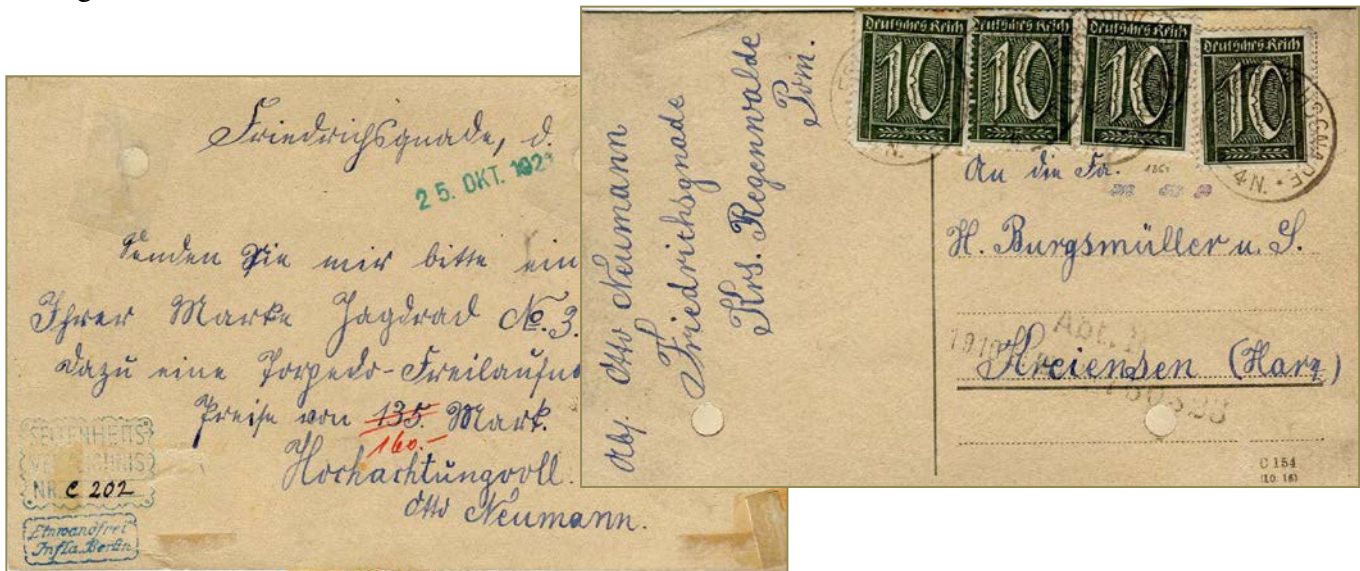 Friedrichsgnade, d.
25. OKT. 1921
Senden Sie mir bitte ein
Ihrer Marke Jagdrad No. 3.
dazu eine Torpedo-Freilaufna
Preise von 135. Mark.
160.-
Hochachtungvoll.
Otto Neumann.
SELTENHEITS
VERZEICHNIS
NR. C 202
Einwandfrei
Infla Berlin
Abs. Otto Neumann
Friedrichsgnade
Krs. Regenwalde
Pom.
Deutsches Reich
10
Deutsches Reich
10
Deutsches Reich
10
Deutsches Reich
10
4N.
An die Fa.
H. Burgsmüller u. S.
Abt. II
Kreiensen (Harz)
C 154
(10. 16)